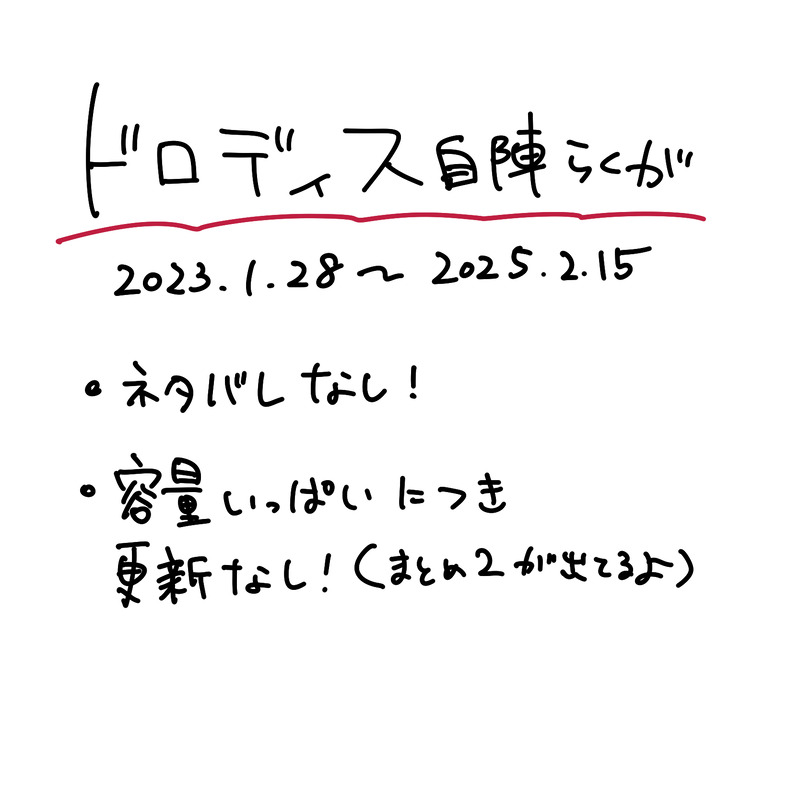 ドロディス自陣らくが
2023.1.28～2025.2.15
・ネタバレなし！
・容量いっぱいにつき
更新なし！（まとめ2が出てるよ）